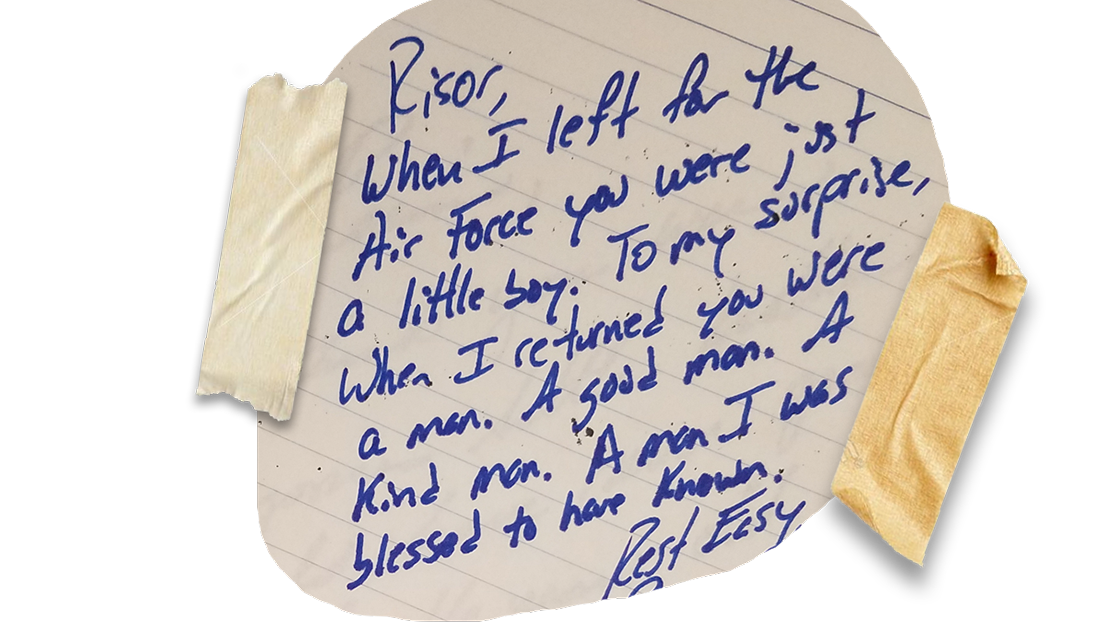 Risor,
When I left for the
Air Force you were just
a little boy. To my surprise,
When I returned you were
a man. A good man. A
Kind man. A man I was
blessed to have known.
Rest Easy